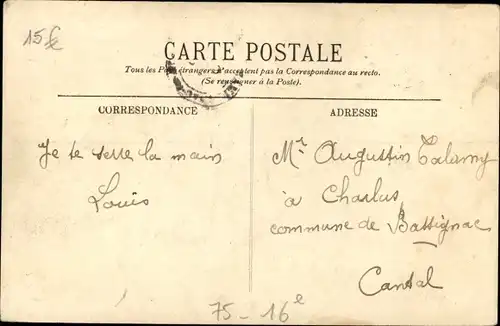 15€
CARTE POSTALE
Tous les Pays étrangers n'acceptent pas la Correspondance au recto.
(Se renseigner à la Poste).
CORRESPONDANCE
ADRESSE
Je te serre la main
Louis
Mr Augustin
à Chaslus
commune de Bassignac
Cantal
75-16e